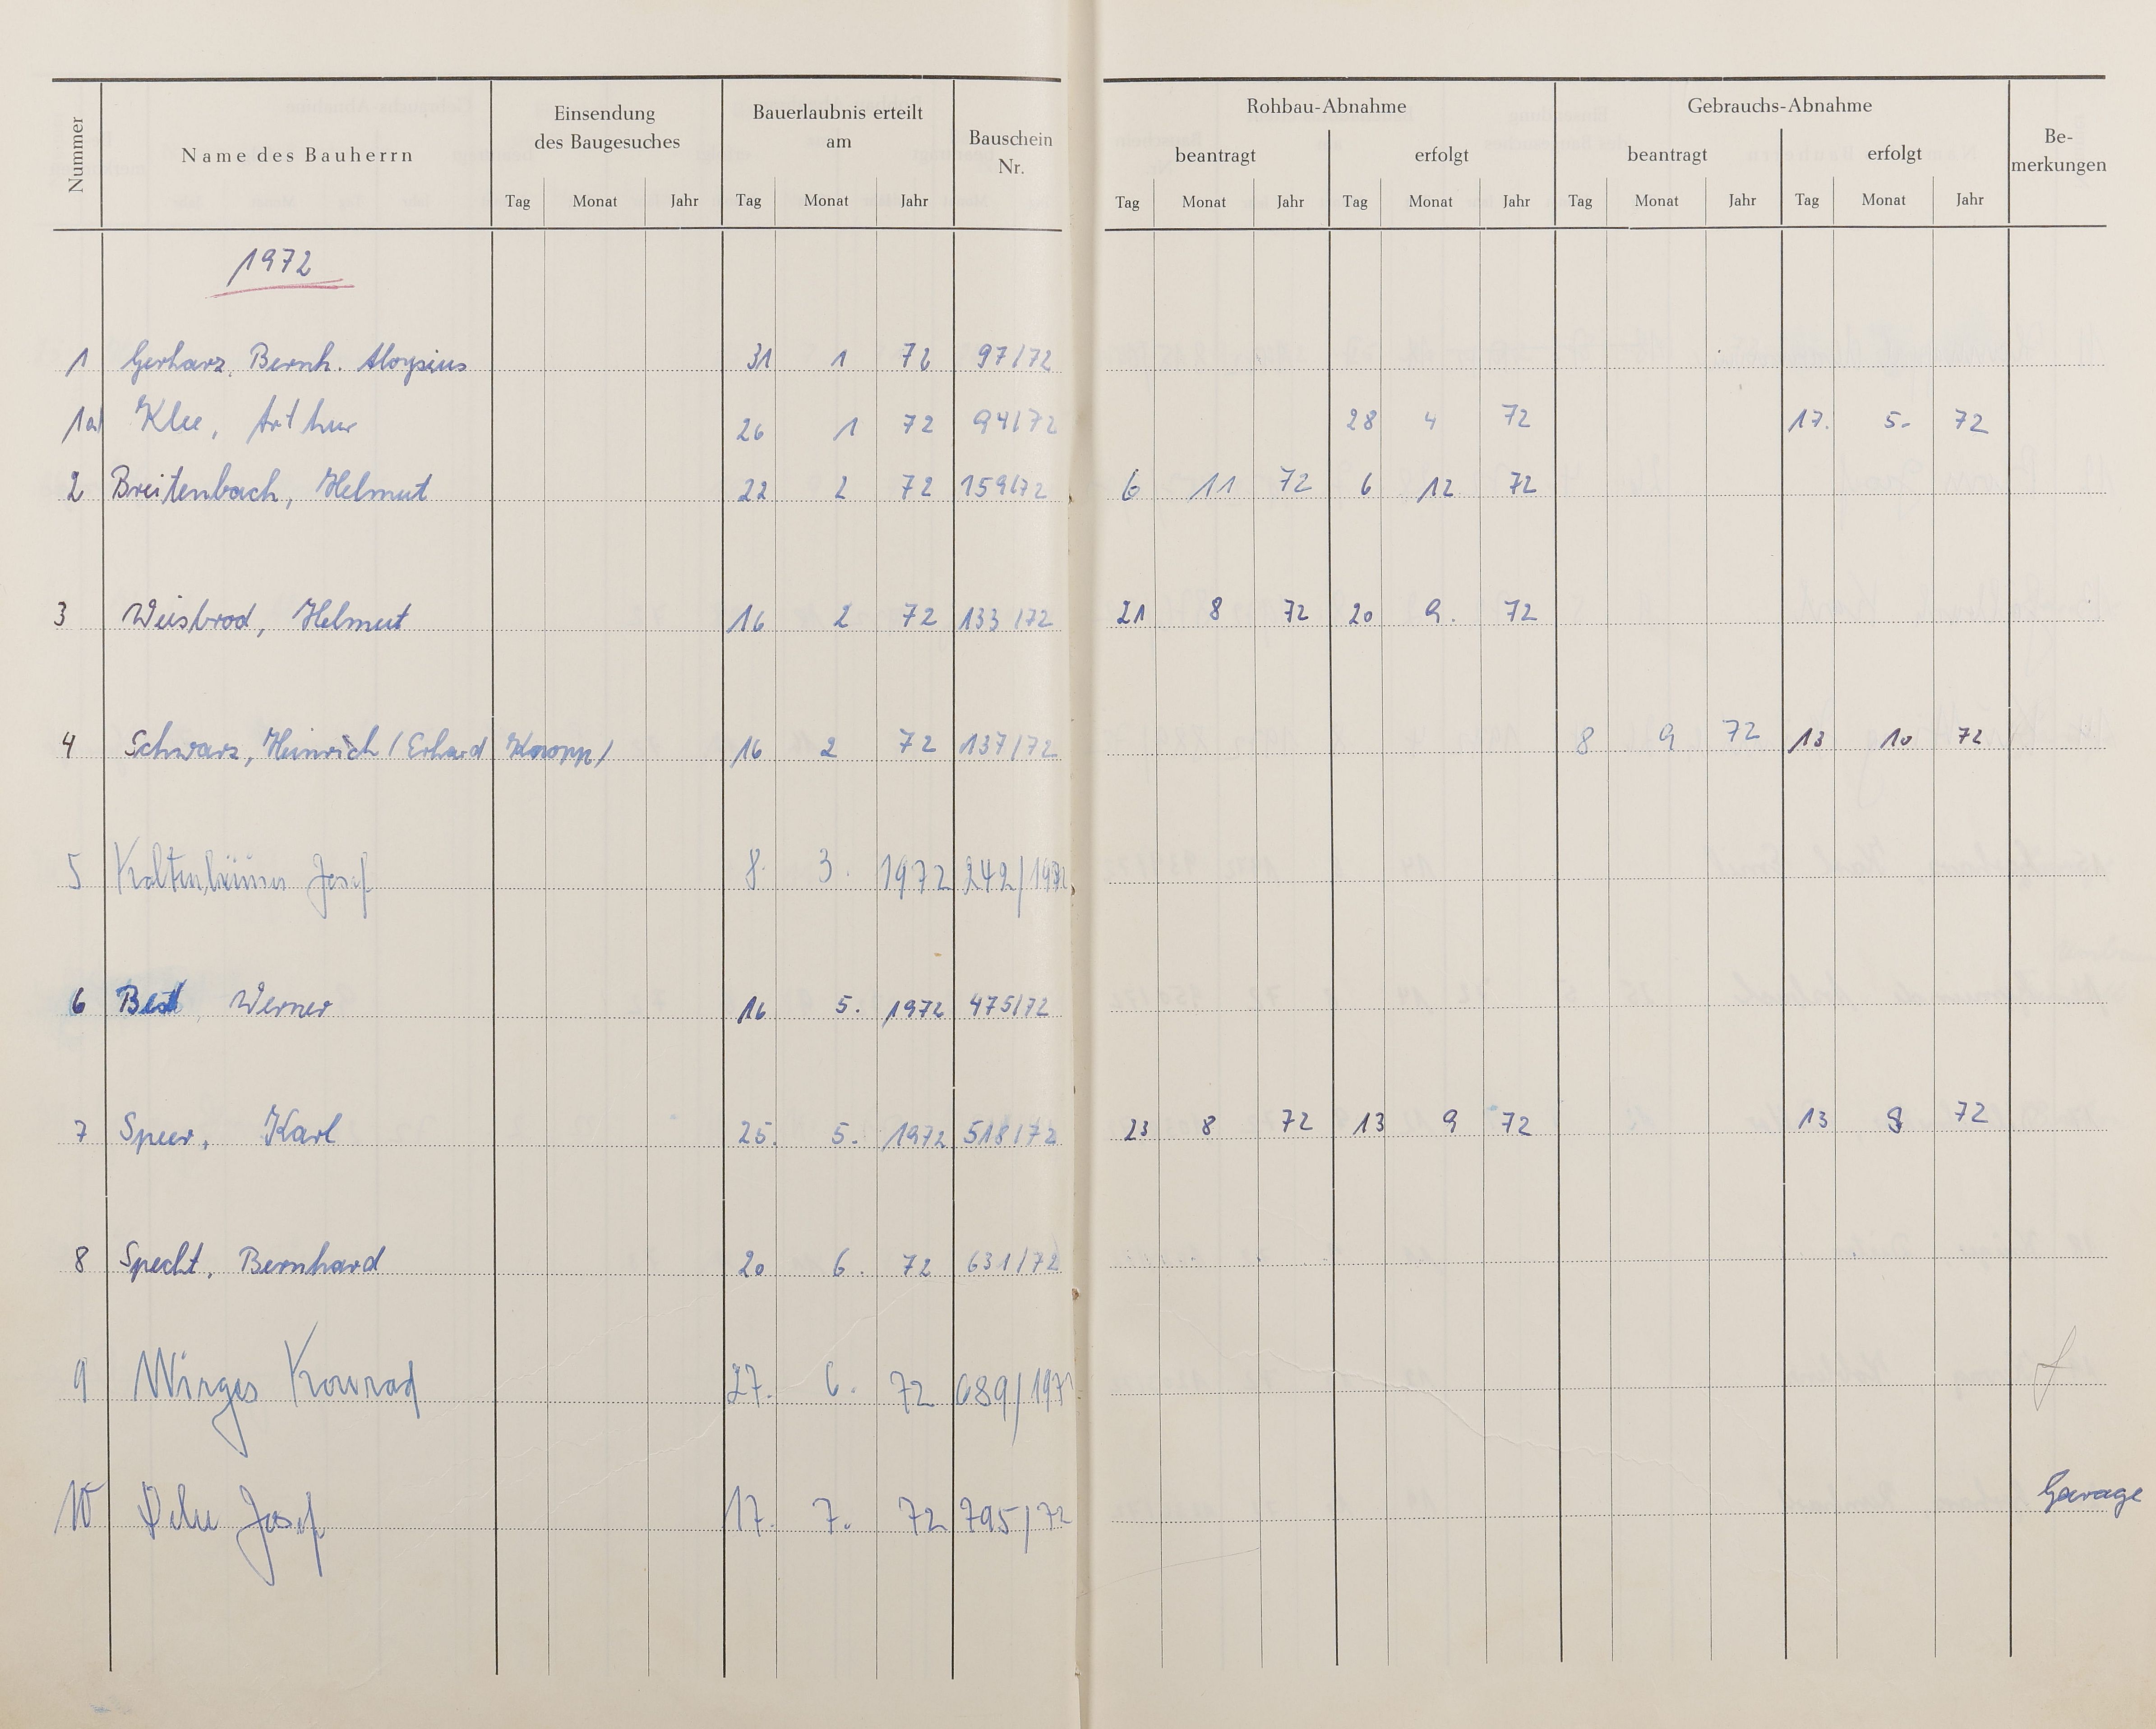 Nummer Name des Bauherrn Einsendung des Baugesuches Bauerlaubnis erteilt am Bauschein Nr. Rohbau-Abnahme Gebrauchs-Abnahme Be-merkungen
beantragt erfolgt beantragt erfolgt
Tag Monat Jahr Tag Monat Jahr Tag Monat Jahr Tag Monat Jahr Tag Monat Jahr Tag Monat Jahr
1972
1 Gerharz, Bernh. Aloysius 31 1 72 97/72
1a) Klee, Arthur 26 1 72 94/72 28 4 72 17. 5. 72
2 Breitenbach, Helmut 22 2 72 159/72 6 11 72 6 12 72
3 Weisbrod, Helmut 16 2 72 133/72 21 8 72 20 9. 72
4 Schwarz, Heinrich (Erhard Knopp) 16 2 72 137/72 8 9 72 13 10 72
5 Josef 8. 3. 1972 242/1972
6 Werner 16 5. 1972 475/72
7 Speer, Karl 25. 5. 1972 518/72 23 8 72 13 9 72 13 9 72
8 Specht, Bernhard 20 6. 72 631/72
9 Wirges Konrad 27. 6. 72 689/197
10 Josef 17. 7. 72 795/72 Garage